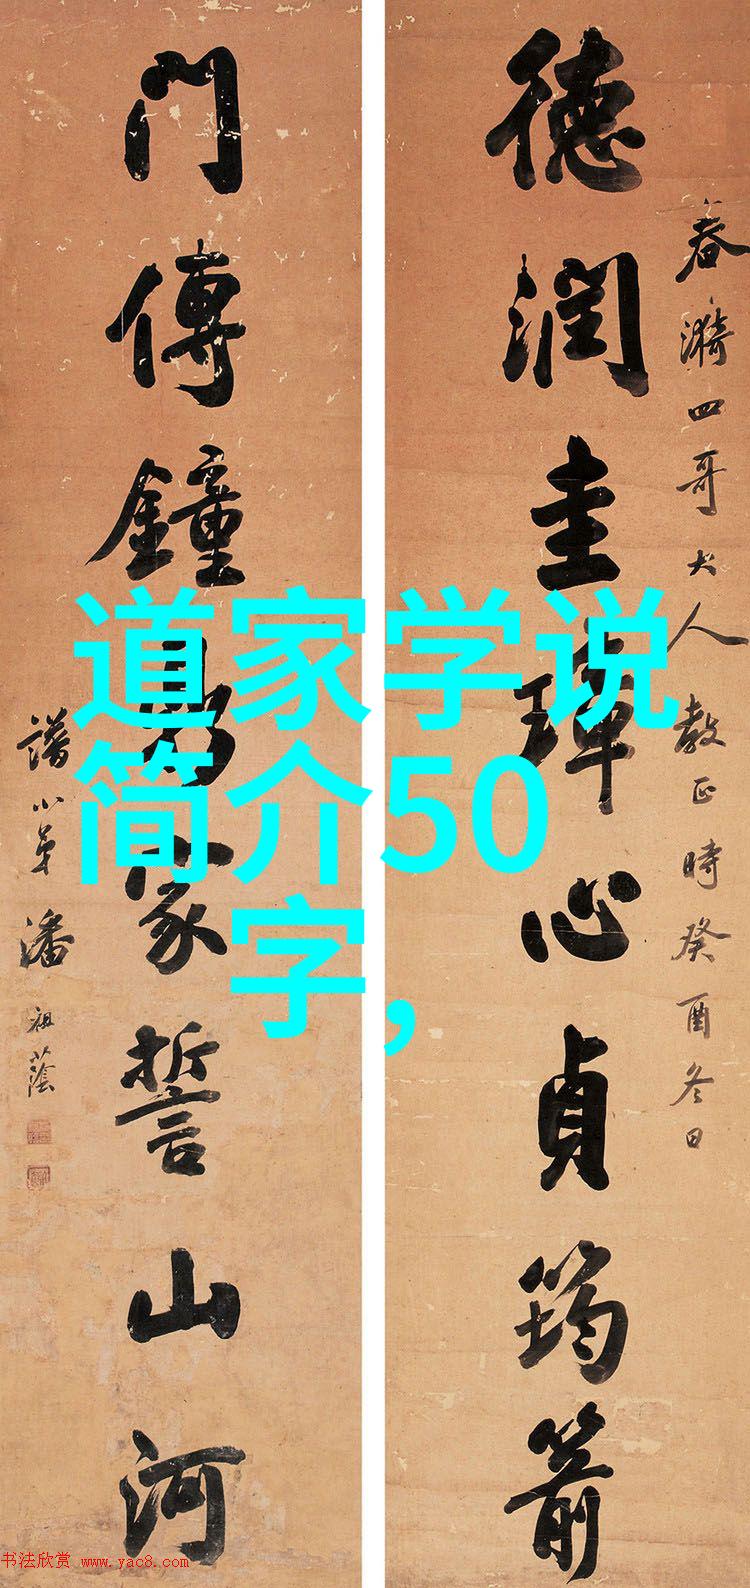 春漪四哥大人教正時癸酉冬日
德潤圭璋心貞筠箭
門傳鐘鼎家誓山河
譜小弟潘祖蔭
道家学说
简介50
字,
书法欣赏 www.yac8.com